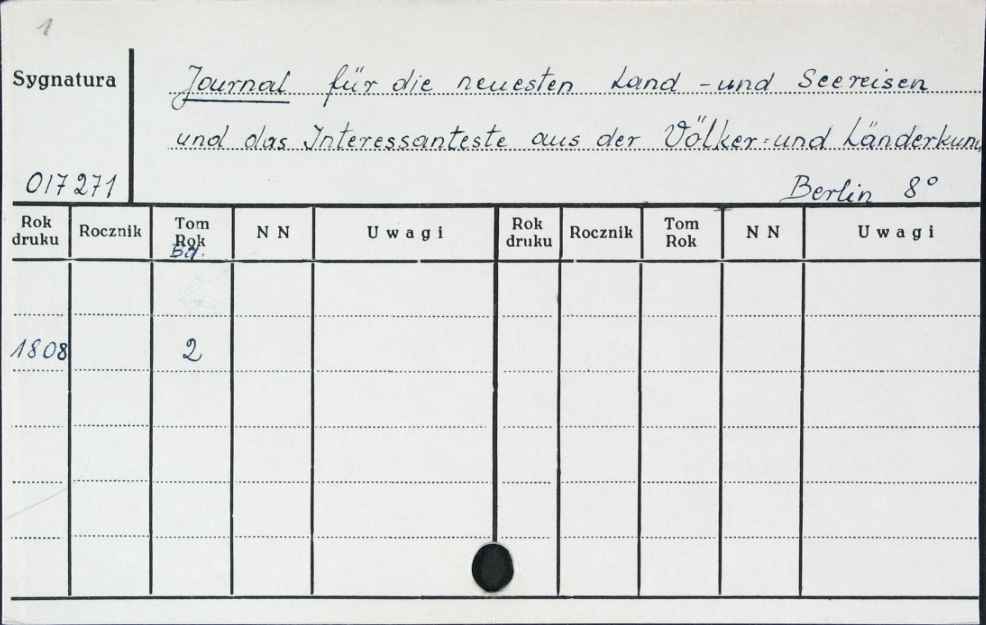 1
Sygnatura
Journal für die neuesten Land - und Seereisen
und das Interessanteste aus der Völker= und Länderkun
017271
Berlin 8°
Rok druku Rocznik Tom Rok N N Uwagi Rok druku Rocznik Tom Rok N N Uwagi
Bd.
1808 2